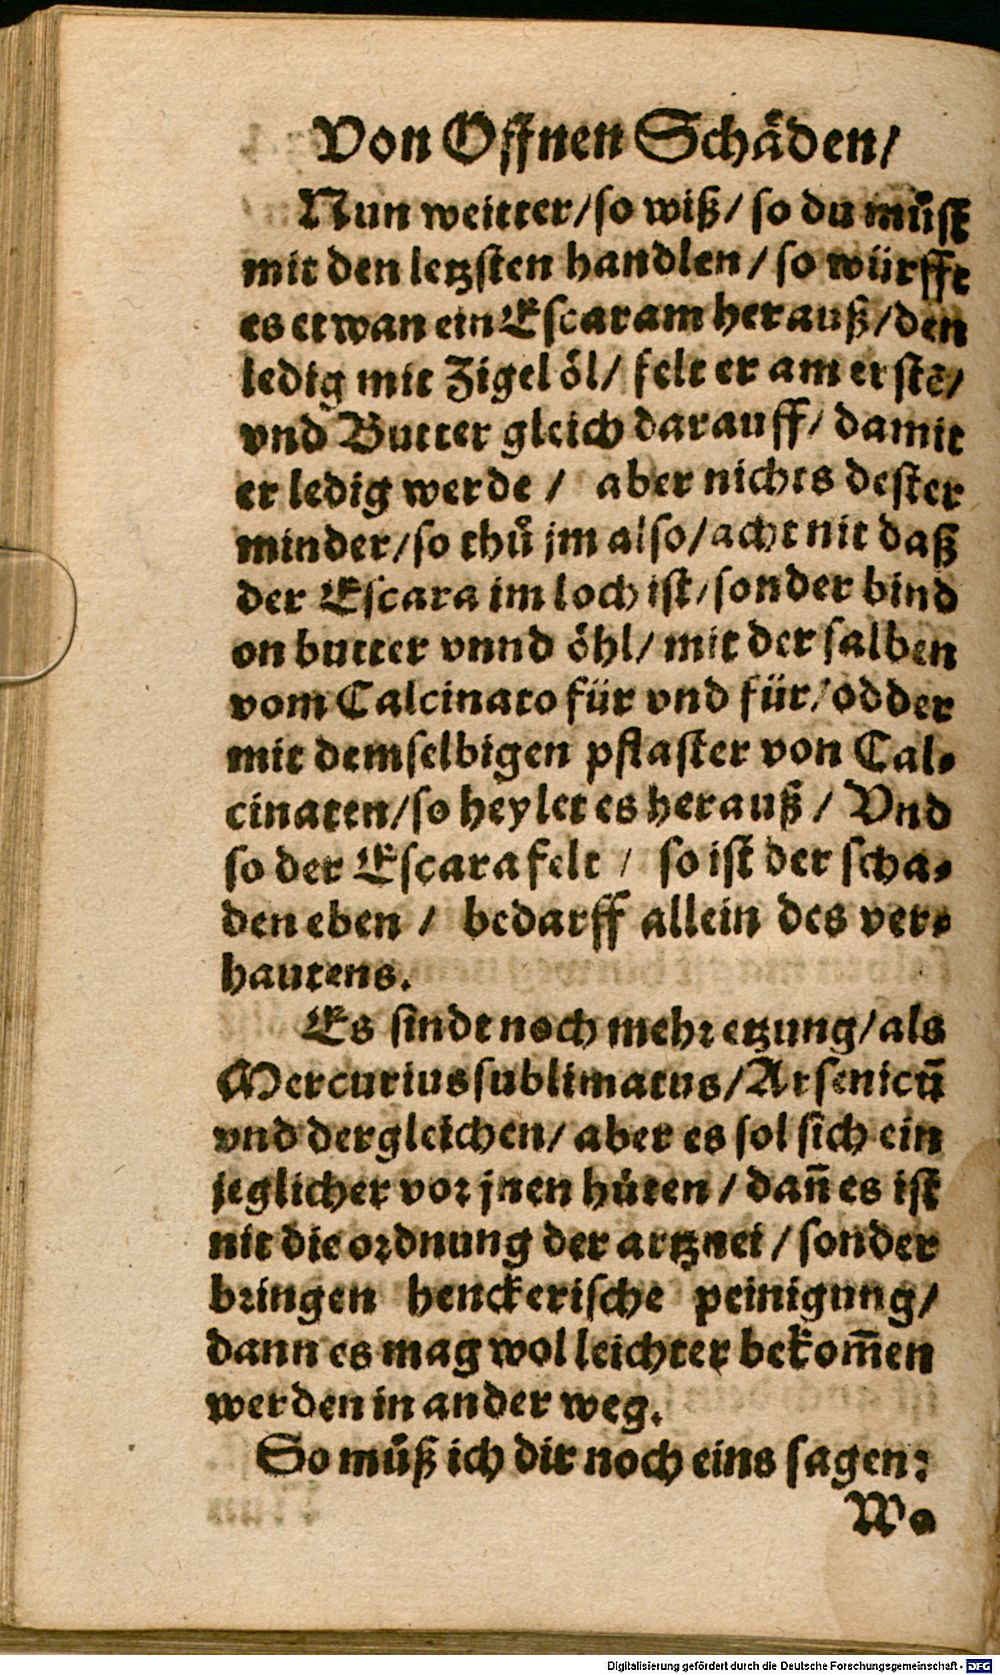 Von Offnen Schäden/
Nun weitter/so wiß/ so du můſt
mit den letzſten handlen / ſo würfft
es etwan ein Eſcaram herauß/den
ledig mit Zigel öl/ felt er am erſtē/
vnd Butter gleich darauff/ damit
er ledig werde / aber nichts deſter
minder/ſo thů jm alſo/acht nit daß
der Eſcara im loch iſt/ſonder bind
on butter vnnd öhl/ mit der ſalben
vom Calcinato für vnd für/odder
mit demſelbigen pflaſter von Cal⸗
cinaten/ſo heylet es herauß / Vnd
ſo der Eſcara felt / ſo iſt der ſcha⸗
den eben / bedarff allein des ver⸗
hautens.
Es ſindt noch mehr etzung/als
Mercurius ſublimatus/Arſenicū
vnd dergleichen/ aber es ſol ſich ein
jeglicher vor jnen hůten / dañ es iſt
nit die ordnung der artznei / ſonder
bringen henckeriſche peinigung/
dann es mag wol leichter bekom̄en
werden in ander weg.
So můß ich dir noch eins ſagen:
Wo
Digitalisierung gefördert durch die Deutsche Forschungsgemeinschaft - DFG